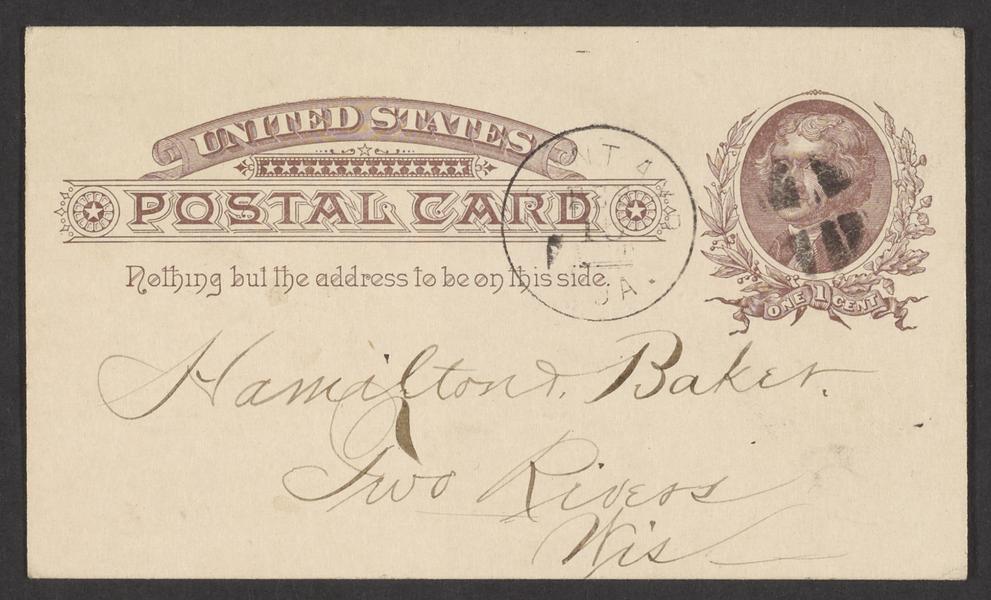 UNITED STATES
POSTAL CARD
Nothing but the address to be on this side.
ONE 1 CENT
Hamilton & Baker.
Two Rivers
Wis